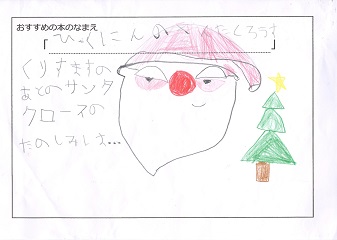 おすすめの本のなまえ
「びっくにんの
くりすますの
あとのサンタ
クロースの
たのしみは…